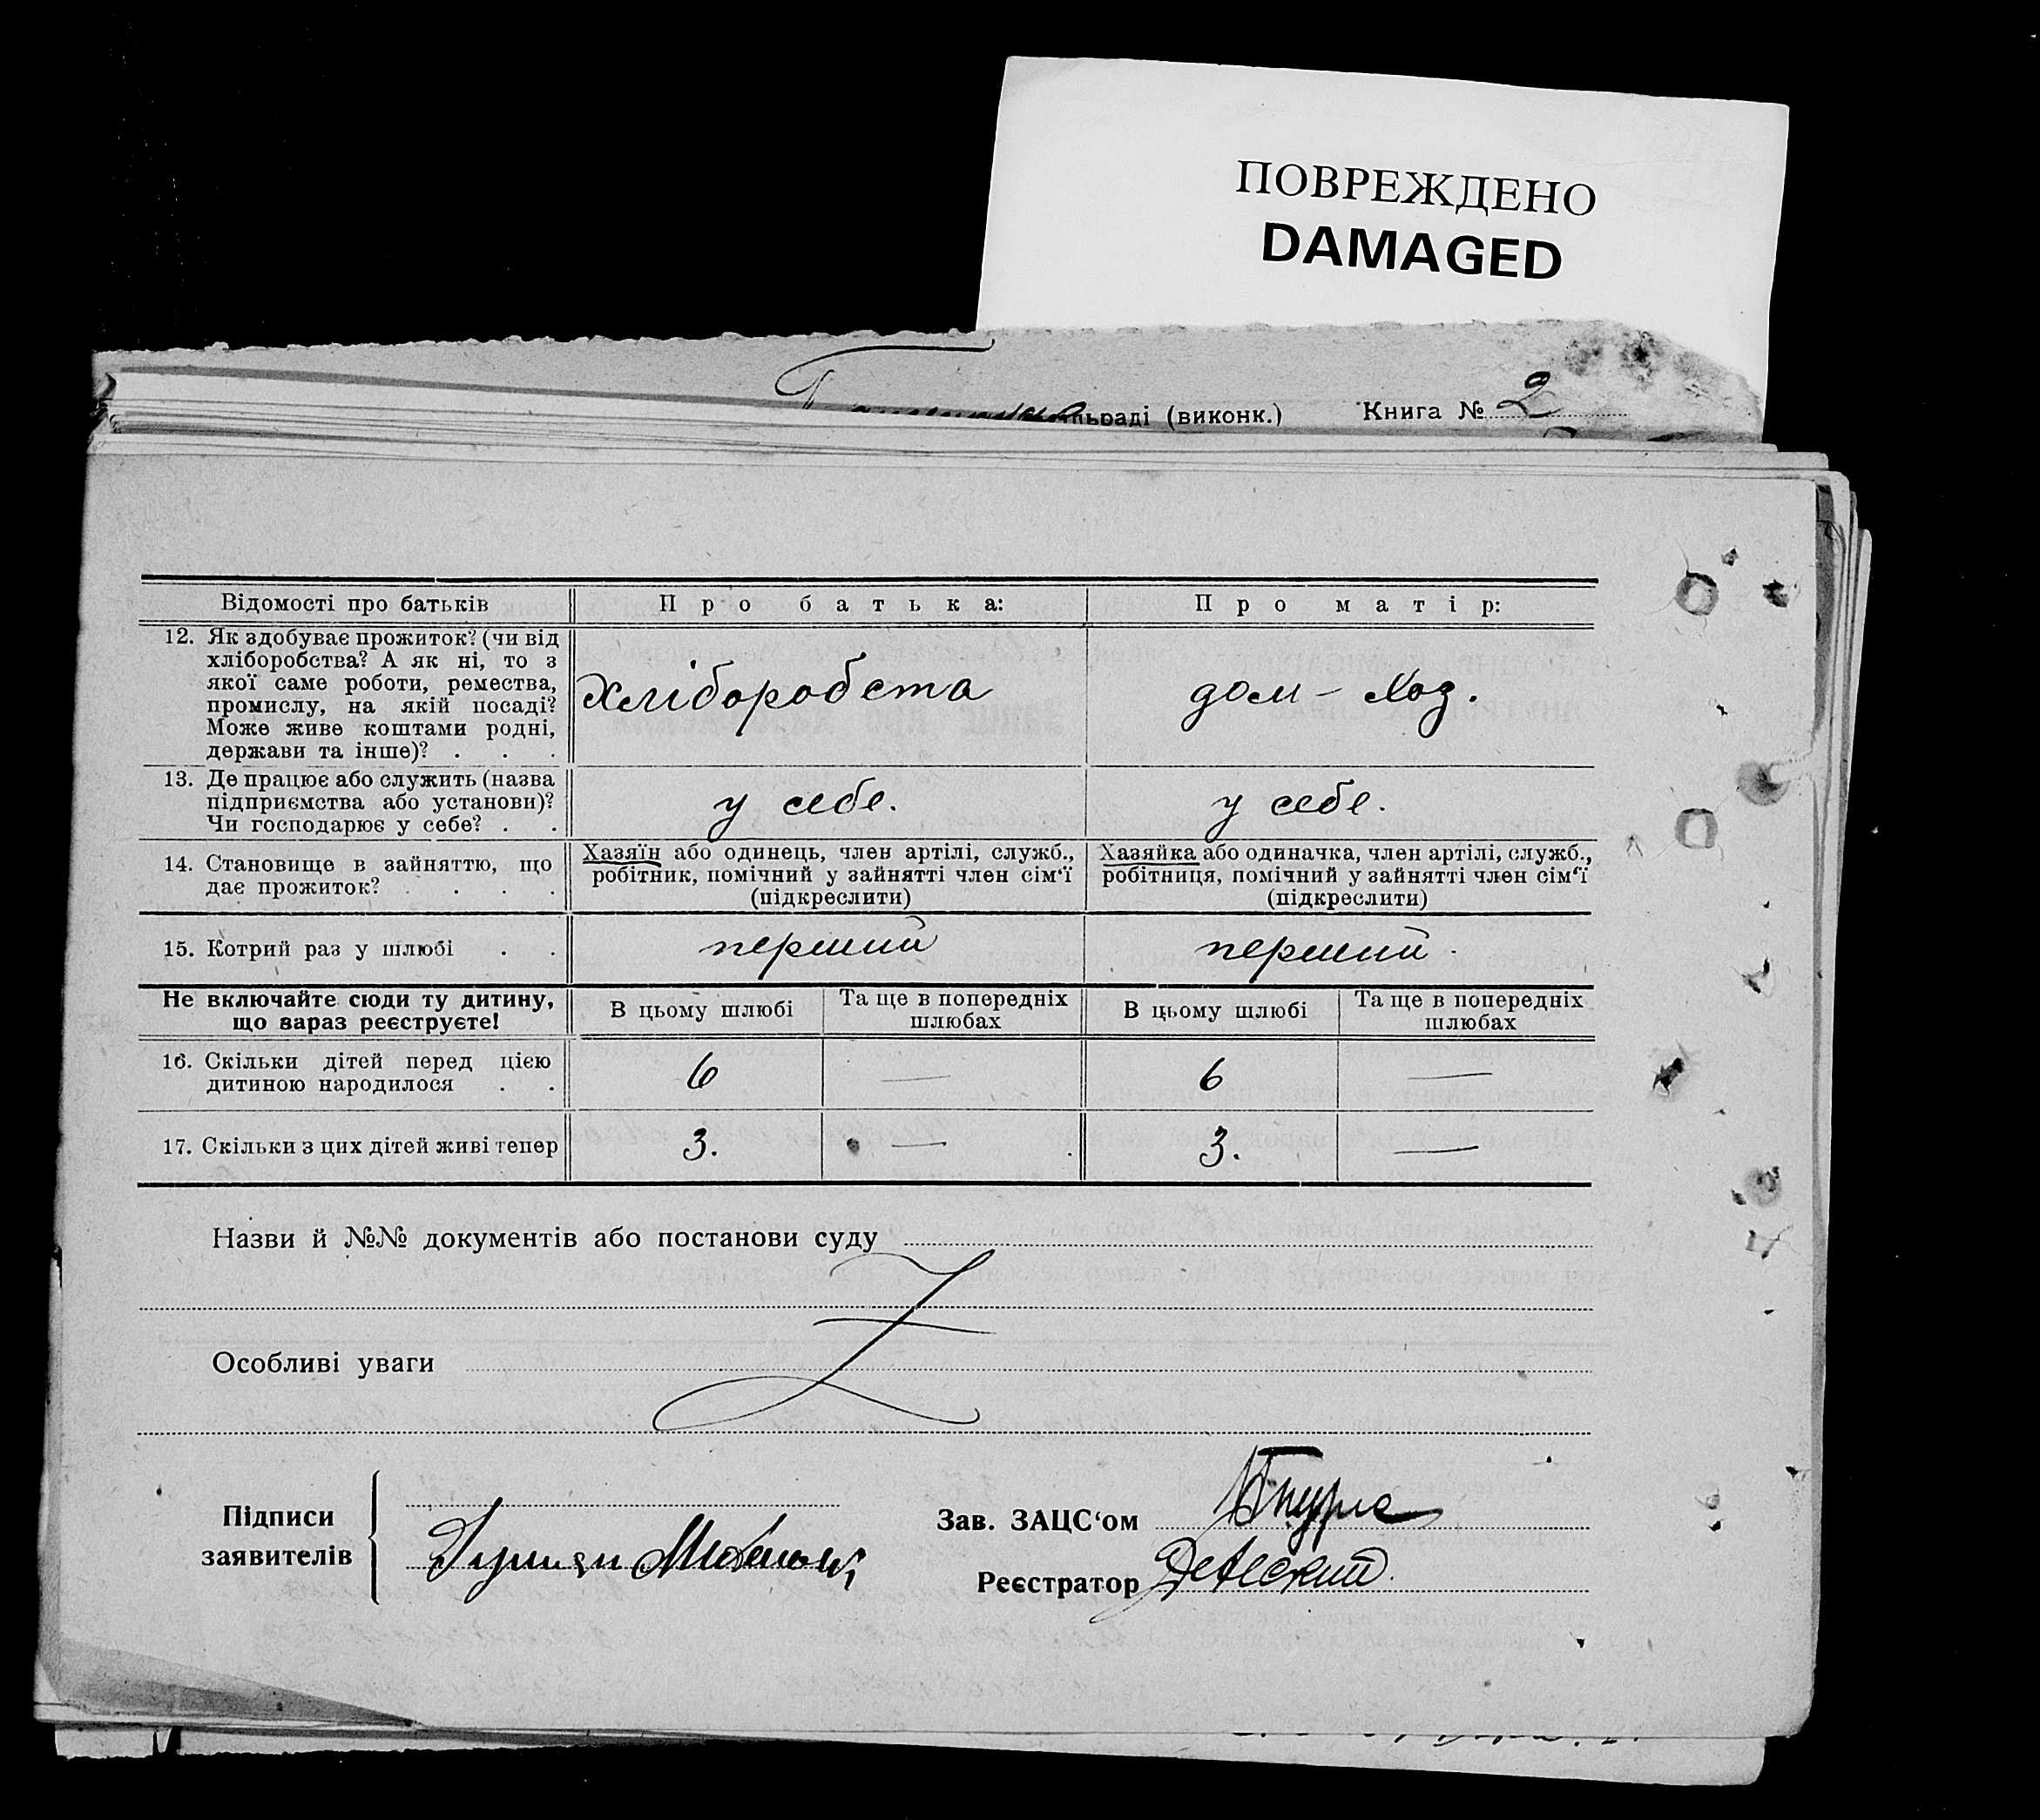 ПОВРЕЖДЕНО
DAMAGED
льраді (виконк.) Книга № 2
Відомості про батьків
Про батька:
Про матір:
12. Як здобуває прожиток? (чи від
хліборобства? А як ні, то з
якої саме роботи, ремества,
промислу, на якій посаді?
Може живе коштами родні,
держави та інше)? . . .
хліборобста
дом – хоз.
13. Де працює або служить (назва
підприємства або установи)?
Чи господарює у себе? . .
у себе.
у себе.
14. Становище в зайняттю, що
дає прожиток? . . . .
Хазяїн або одинець, член артілі, служб.,
робітник, помічний у зайнятті член сім‘ї
(підкреслити)
Хазяйка або одиначка, член артілі, служб.,
робітниця, помічний у зайнятті член сім‘ї
(підкреслити)
15. Котрий раз у шлюбі . .
перший
перший
Не включайте сюди ту дитину,
що вараз реєструєте!
В цьому шлюбі
Та ще в попередніх
шлюбах
В цьому шлюбі
Та ще в попередніх
шлюбах
16. Скільки дітей перед цією
дитиною народилося . .
6 — 6 —
17. Скільки з цих дітей живі тепер
3. — 3. —
Назви й №№ документів або постанови суду
Особливі уваги
Підписи
заявителів
Зав. ЗАЦС‘ом
Реєстратор